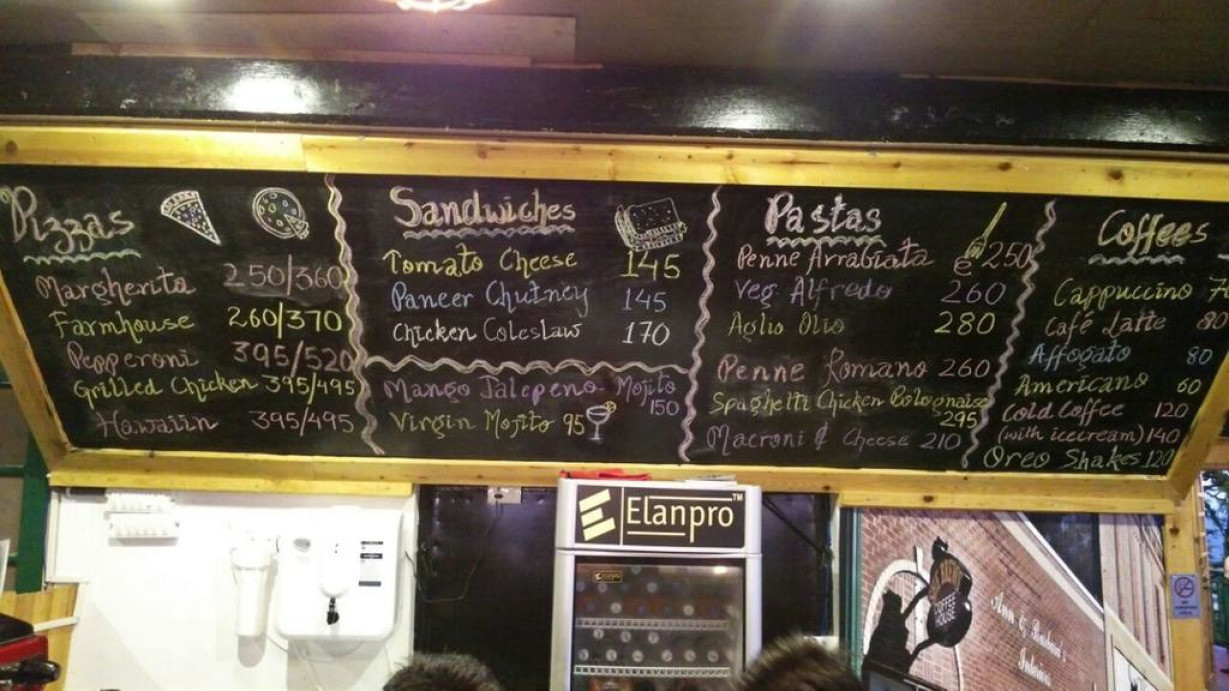 Pizzas
Margherita 250/360
Farmhouse 260/370
Pepperoni 395/520
Grilled Chicken 395/495
Hawaiin 395/495
Sandwiches
Tomato Cheese 145
Paneer Chutney 145
Chicken Coleslaw 170
Mango Jalepeno Mojito
150
Virgin Mojito 95
Pastas
Penne Arrabiata @ 250
Veg Alfredo 260
Aglio Olio 280
Penne Romano 260
Spaghetti Chicken Bolognaise
295
Macroni & Cheese 210
Coffees
Cappuccino
Café Latte 80
Affogato 80
Americano 60
Cold Coffee 120
(with icecream) 140
Oreo Shakes 120
Elanpro™
COFFEE
HOUSE
Interiors